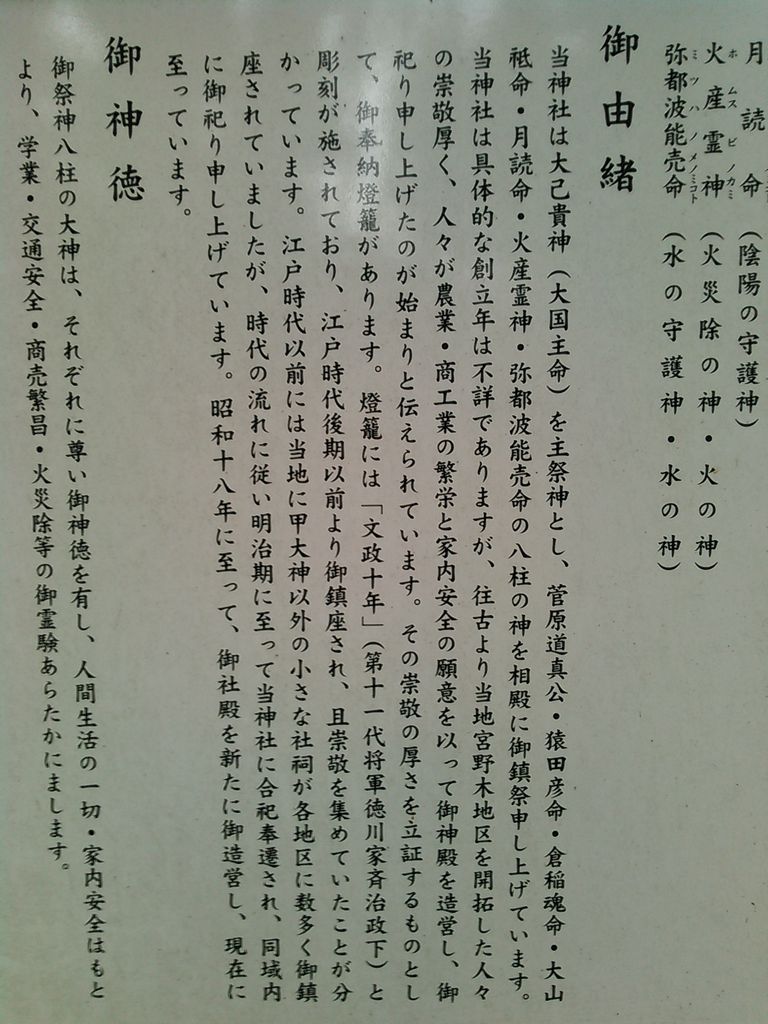 月読命（陰陽の守護神）
火産霊神（火災除の神・火の神）
弥都波能売命（水の守護神・水の神）
御由緒
当神社は大己貴神（大国主命）を主祭神とし、菅原道真公・猿田彦命・倉稲魂命・大山
祗命・月読命・火産霊神・弥都波能売命の八柱の神を相殿に御鎮祭申し上げています。
当神社は具体的な創立年は不詳でありますが、往古より当地宮野木地区を開拓した人々
の崇敬厚く、人々が農業・商工業の繁栄と家内安全の願意を以って御神殿を造営し、御
祀り申し上げたのが始まりと伝えられています。その崇敬の厚さを立証するものとし
て、御奉納燈籠があります。燈籠には「文政十年」（第十一代将軍徳川家斉治政下）と
彫刻が施されており、江戸時代後期以前より御鎮座され、且崇敬を集めていたことが分
かっています。江戸時代以前には当地に甲大神以外の小さな社祠が各地区に数多く御鎮
座されていましたが、時代の流れに従い明治期に至って当神社に合祀奉遷され、同域内
に御祀り申し上げています。昭和十八年に至って、御社殿を新たに御造営し、現在に
至っています。
御神徳
御祭神八柱の大神は、それぞれに尊い御神徳を有し、人間生活の一切・家内安全はもと
より、学業・交通安全・商売繁昌・火災除等の御霊験あらたかにまします。